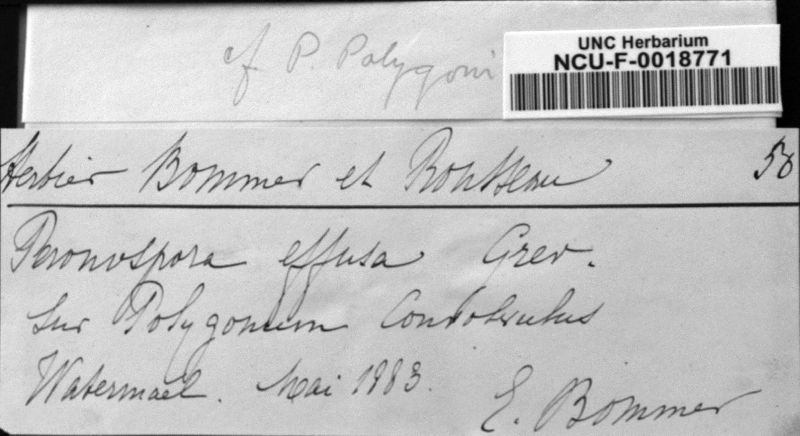 cf P. Polygoni
UNC Herbarium
NCU-F-0018771
Herbier Bommer et Rousseau 58
Peronospora effusa Grev.
sur Polygonum Convolvulus
Watermael. Mai 1883.
E. Bommer